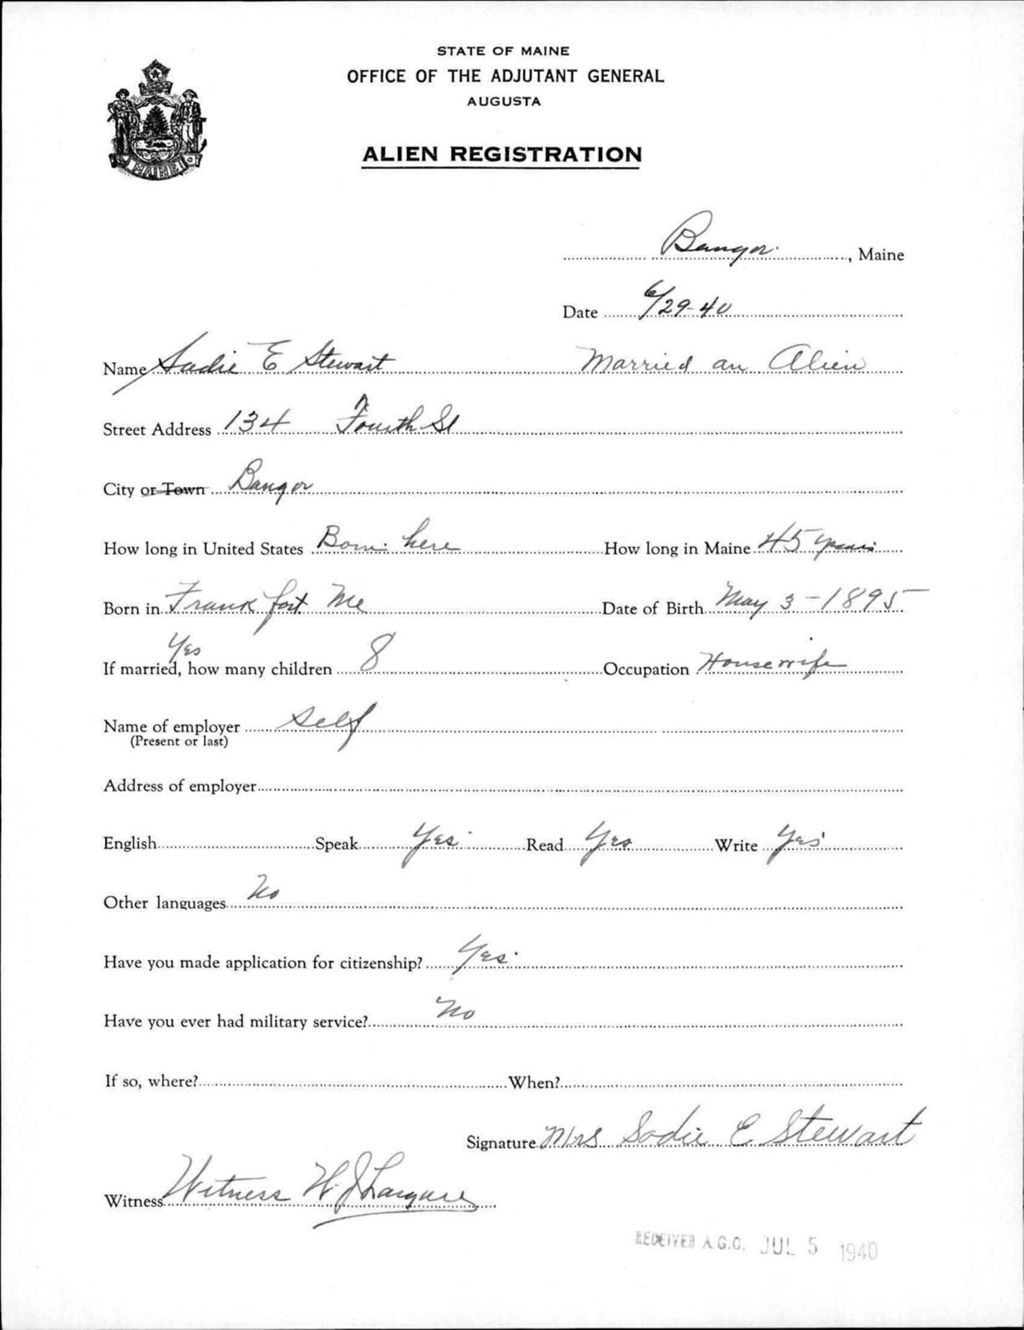 STATE OF MAINE
OFFICE OF THE ADJUTANT GENERAL
AUGUSTA
ALIEN REGISTRATION
MAINE
Bangor, Maine
Date 6/29-40
Name Sadie E Stewart Married an Alien
Street Address 134 Fourth St
City or Town Bangor
How long in United States Born here How long in Maine 45 years
Born in Frankfort Me Date of Birth May 3-1895
Yes
If married, how many children 8 Occupation Housewife
Name of employer self
(Present or last)
Address of employer
English Speak Yes Read Yes Write Yes
Other languages No
Have you made application for citizenship? Yes
Have you ever had military service? No
If so, where? When?
Signature Mrs Sadie E Stewart
Witness Witness W. J.
RECEIVED A.G.O. JUL 5 1940